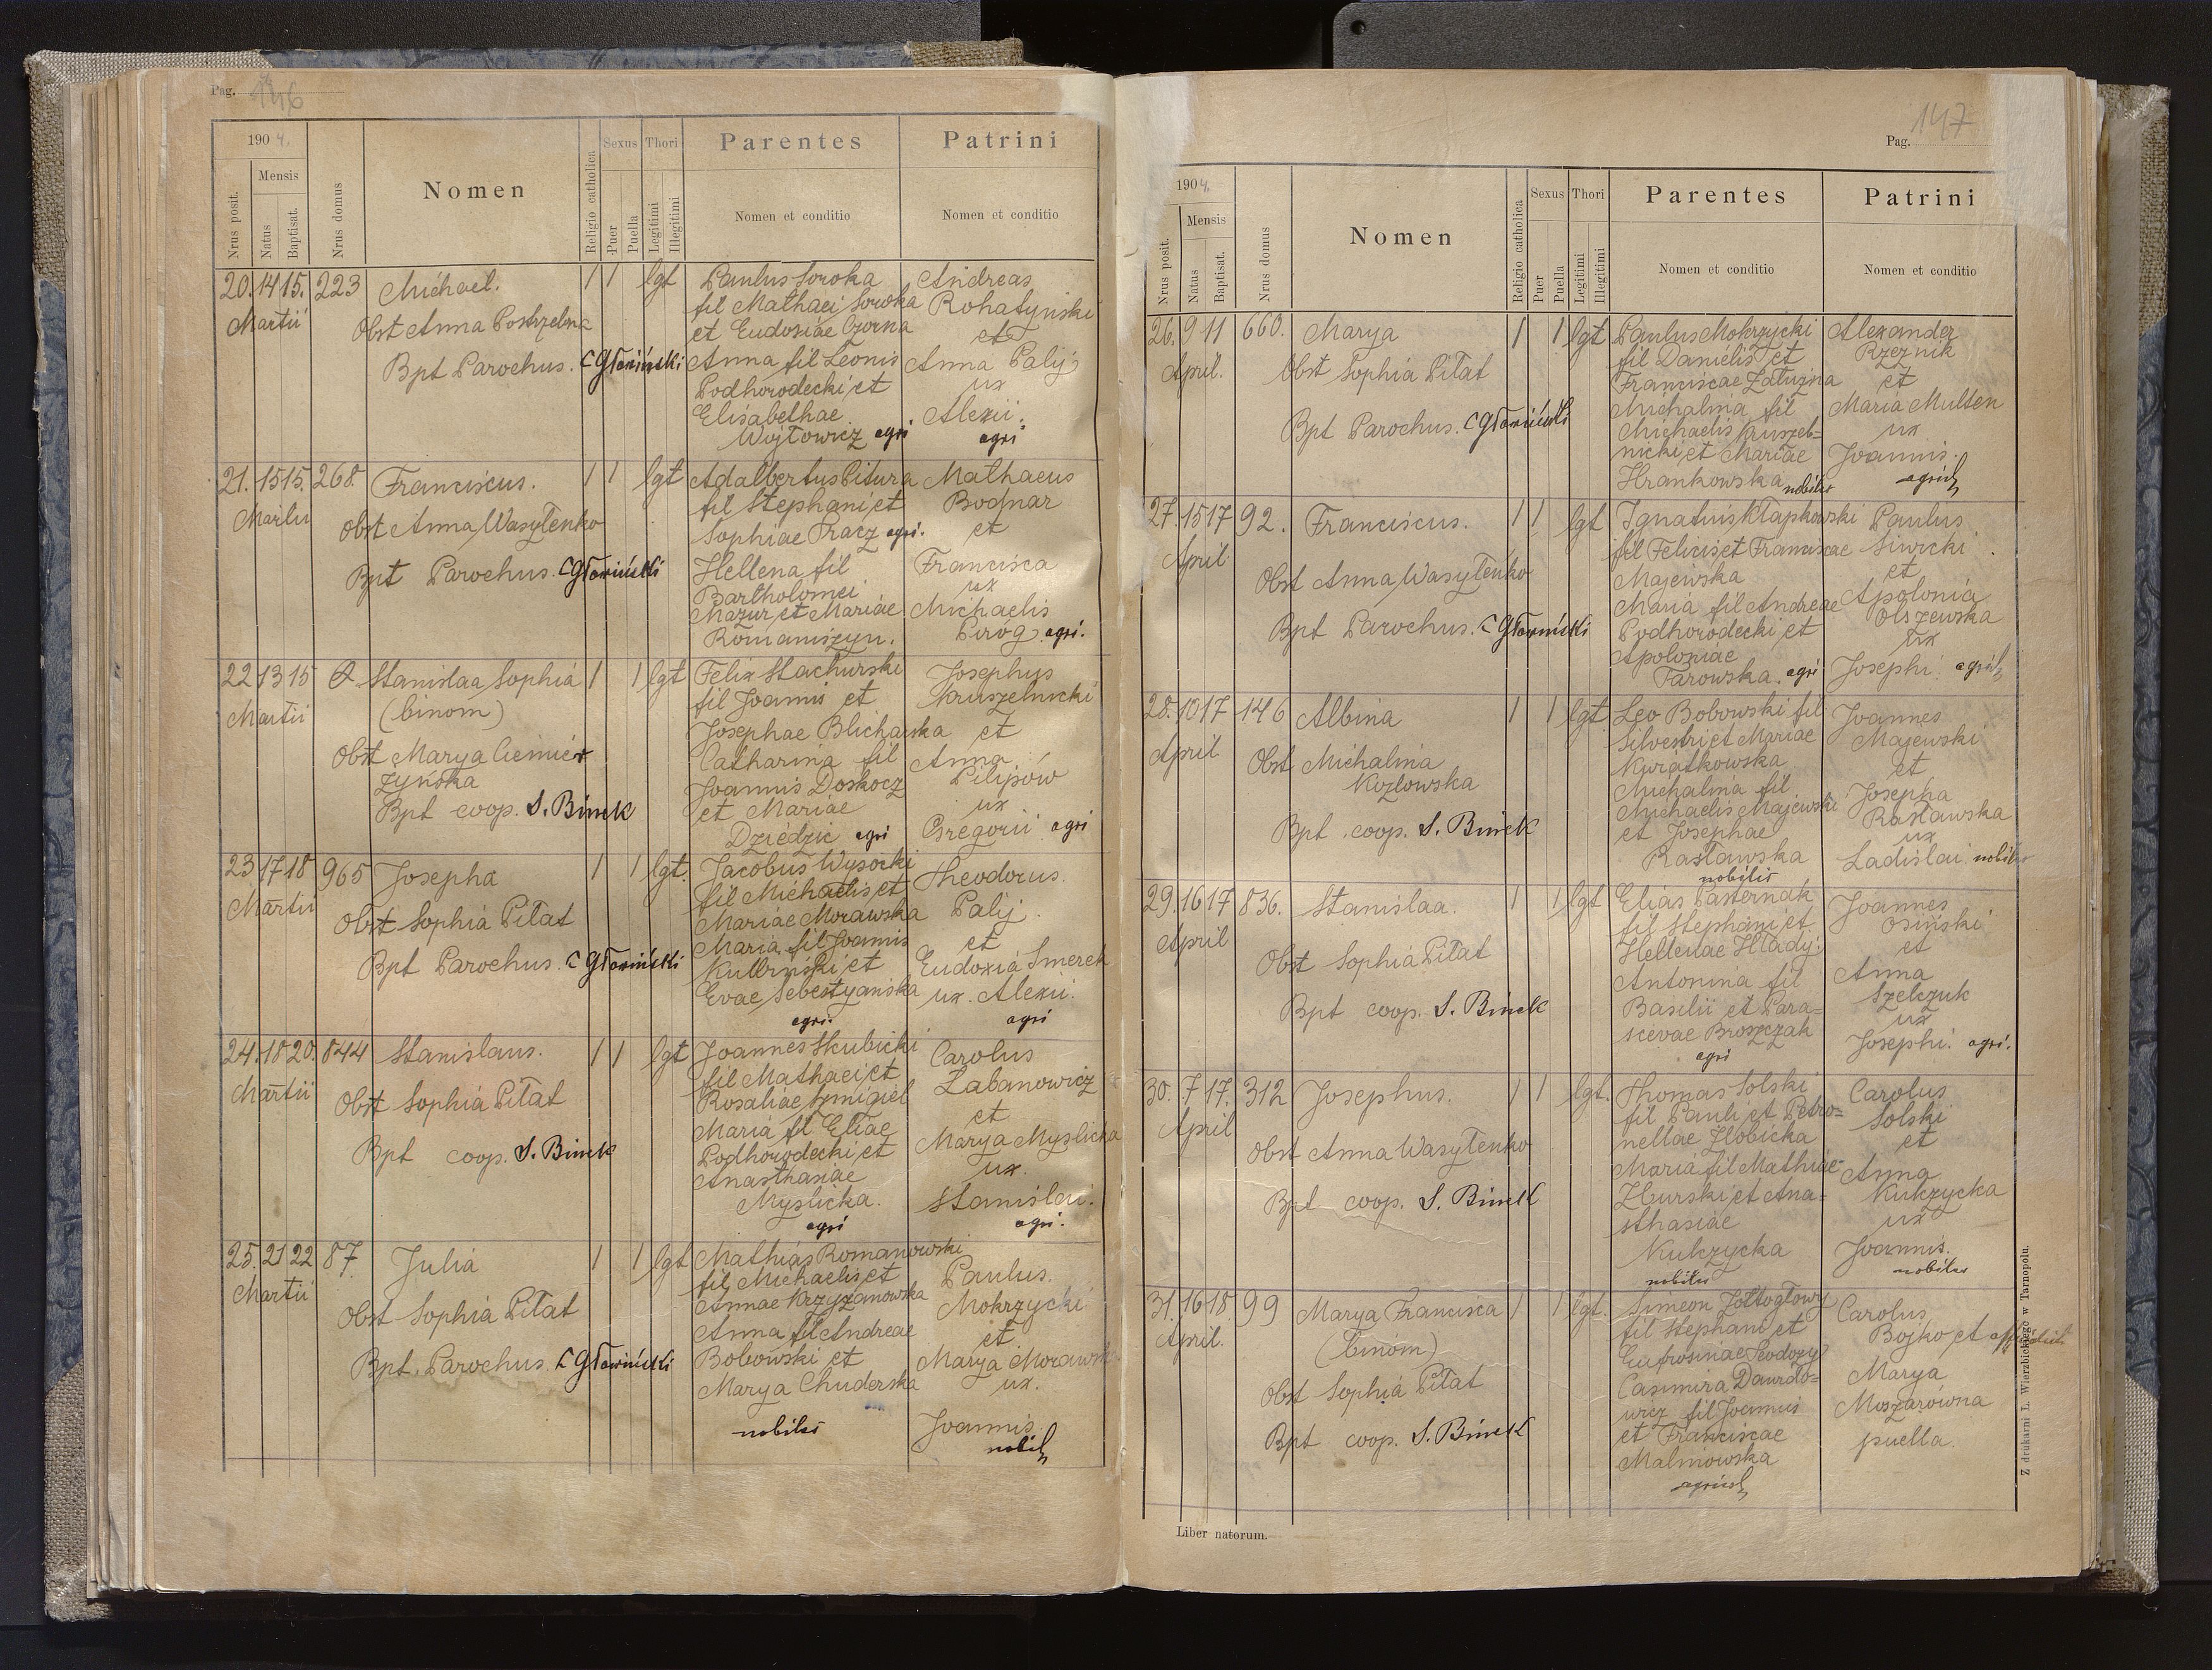 Pag. 146
1904.
Nrus posit.
Mensis
Natus
Baptisat.
Nrus domus
Nomen
Religio catholica
Sexus
Puer
Puella
Thori
Legitimi
Illegitimi
Parentes
Nomen et conditio
Patrini
Nomen et conditio
20. 14 15. 223 Michael. 1 1 lgt
Martii
Obst Anna Postrzelna
Bpt Parochus.
Paulus Soroka
fil Mathaei Soroka
et Eudosiae Czorna
Anna fil Leonis
Podhorodecki et
Elisabethae
Wojtowicz agri
Andreas
Rohatynski
et
Anna Palij
ux
Alexii.
agri
21. 15 15. 268. Franciscus. 1 1 lgt
Martii
Obst Anna Wasylenko
Bpt Parochus.
Adalbertus Pitura
fil Stephani et
Sophiae Pracz agri.
Hellena fil
Bartholomei
Mazur et Mariae
Romaniszyn.
Mathaeus
Bodnar
et
Francisca
ux
Michaelis
Piróg agri.
22 13 15 Stanislaa Sophia 1 1 lgt
Martii
(binom)
Obst Marya
Bpt coop. S. Binek
Felix Stachurski
fil Joannis et
Josephae Blicharska
Catharina fil
Joannis Doskocz
et Mariae
Dziedzic agri
Josephus
Kruszelnicki
et
Anna
Pilipów
ux
Gregorii agri
23 17 18 965 Josepha 1 1 lgt.
Martii
Obst Sophia Piłat
Bpt Parochus.
Jacobus Wysocki
fil Michaelis et
Mariae Morawska
Maria fil Joannis
Kulbinski et
Evae Sebestyanska
agri.
Theodorus.
Palij.
et
Eudoxia Smerek
ux. Alexii.
agri
24. 18 20. 844 Stanislaus. 1 1 lgt
Martii
Obst Sophia Piłat
Bpt coop. S. Binek
Joannes Skubicki
fil Mathaei et
Rosaliae
Maria fil Eliae
Podhorodecki et
Anasthasiae
Myslicka.
agri
Carolus
Labanowicz
et
Marya Myslicka
ux.
Stanislai.
agri.
25. 21 22 87. Julia 1 1 lgt
Martii
Obst Sophia Piłat
Bpt. Parochus.
Mathias Romanowski
fil Michaelis et
Annae Krzyzanowska
Anna fil Andreae
Bobowski et
Marya Chuderska
nobiles
Paulus.
Mokrzycki
et
Marya Morawsk
ux.
Joannis.
nobil
Pag. 147
1904.
Nrus posit.
Mensis
Natus
Baptisat.
Nrus domus
Nomen
Religio catholica
Sexus
Puer
Puella
Thori
Legitimi
Illegitimi
Parentes
Nomen et conditio
Patrini
Nomen et conditio
26. 9 11 660. Marya 1 1 lgt
April.
Obst Sophia Piłat
Bpt Parochus.
Paulus Mokrzycki
fil Danielis et
Franciscae Załuzna
Michalina fil
Michaelis Kruszel=
nicki et Mariae
Hrankowska nobiles
Alexander
Rzeznik
et
Maria Multen
ux
Joannis.
agricol
27. 15 17 92. Franciscus. 1 1 lgt
April
Obst Anna Wasylenko
Bpt Parochus.
Ignatius Kłapkowski
fil Felicis et Franciscae
Majewska
Maria fil Andreae
Podhorodecki et
Apoloniae
Tarowska. agri
Paulus
Siwicki
et
Apolonia
Olszewska
ux
Josephi. agricol
28. 10 17 146 Albina 1 1 lgt
April
Obst Michalina
Kozłowska
Bpt. coop. S. Binek
Leo Bobowski fil
Silvestri et Mariae
Kwiatkowska
Michalina fil
Michaelis Majewski
et Josephae
Rasławska
nobilis
Joannes
Majewski
et
Josepha
Rasławska
ux
Ladislai nobiles
29. 16 17 836. Stanislaa. 1 1 lgt
April
Obst Sophia Piłat
Bpt coop. S. Binek
Elias Pasternak
fil Stephani et
Hellenae Hlady.
Antonina fil
Basilii et Para=
scevae Broszczak
agri
Joannes
Osiński
et
Anna
Szelczuk
ux
Josephi. agri.
30. 7 17. 312 Josephus. 1 1 lgt.
April
Obst Anna Wasylenko
Bpt coop. S. Binek
Thomas Solski
fil Pauli et Petro=
nellae Złobicka
Maria fil Mathiae
Zburski et Ana=
sthasiae
Kulczycka
nobiles
Carolus
Solski
et
Anna
Kulczycka
ux
Joannis.
nobiles
31. 16 18 99 Marya Francisca 1 1 lgt.
April.
(binom)
Obst Sophia Piłat
Bpt coop. S. Binek
Simeon Żółtogłowy
fil Stephani et
Eufrosinae
Casimira Dawido=
wicz fil Joannis
et Franciscae
Malinowska
agricol
Carolus
Bojko et
Marya
Moszarówna
puella
Liber natorum.
Z drukarni L. Wierzbickiego w Tarnopolu.